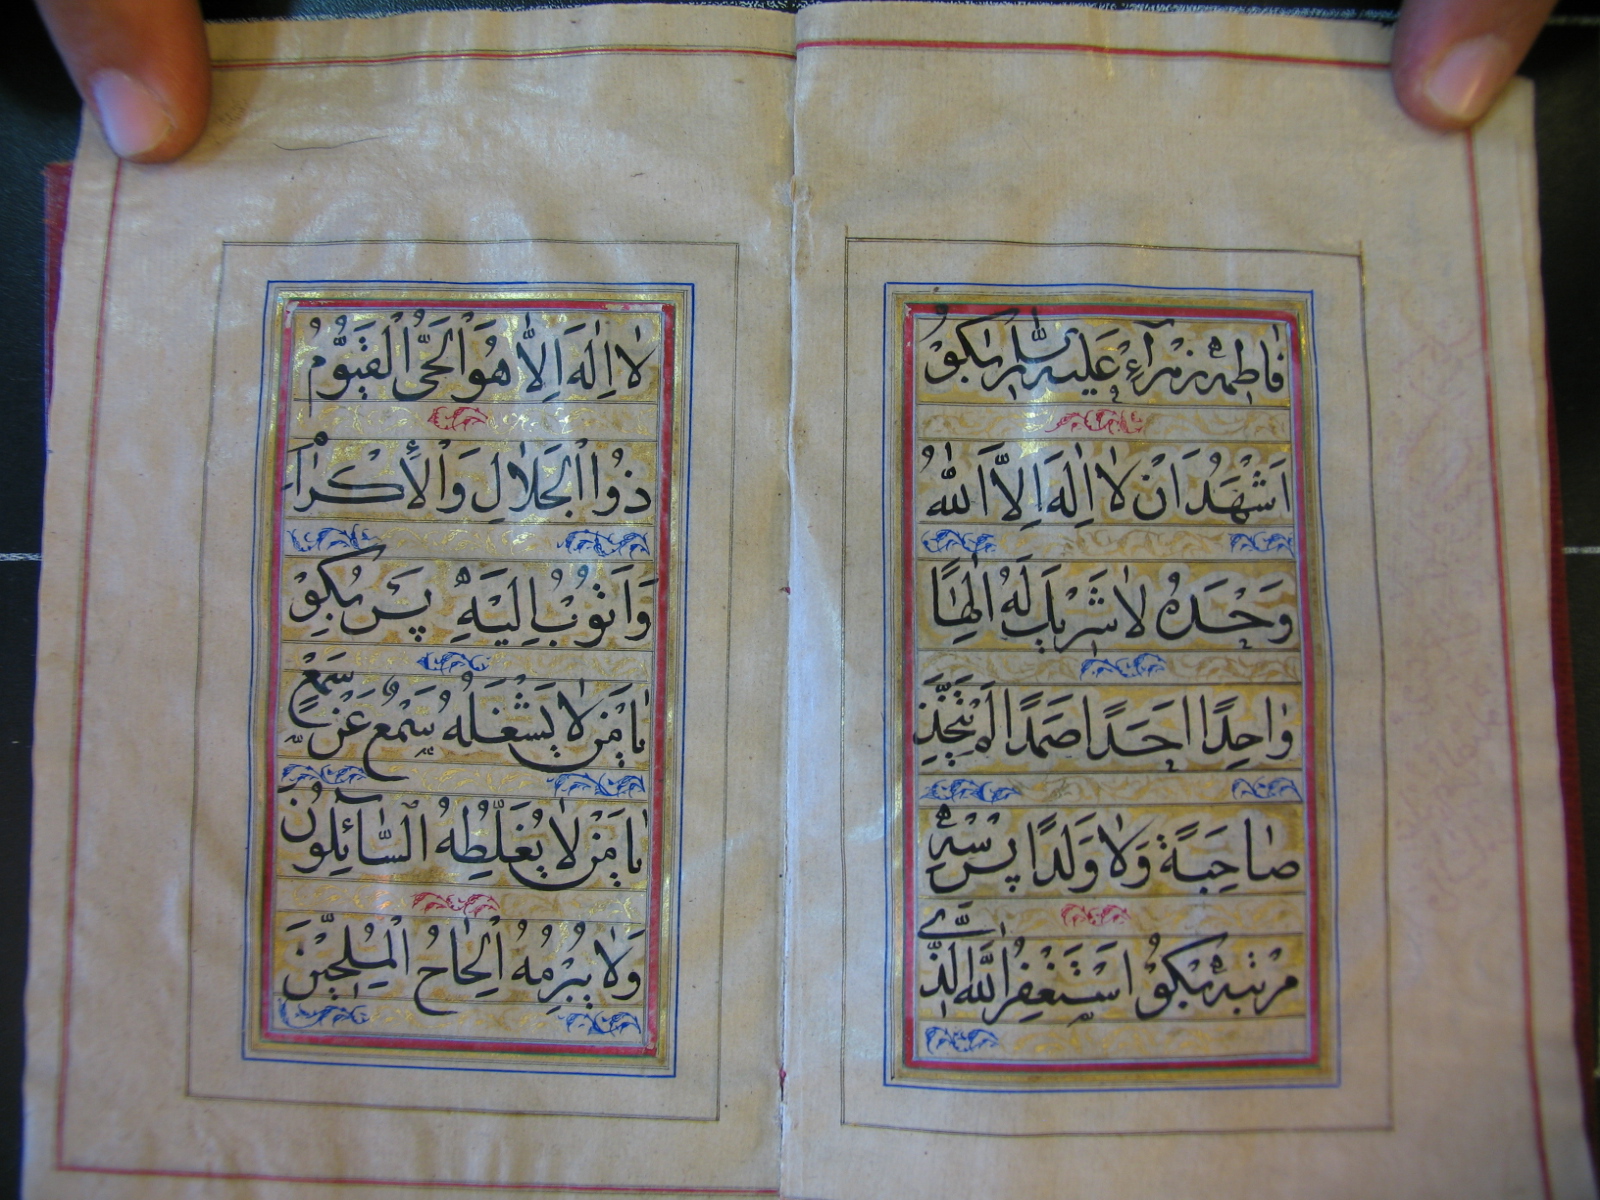 فاطمه زهرآءِ عَليه السّلام بكوُ
اَشْهَدُ اَنْ لاٰ اِلٰهَ اِلاَّ اَللهُ
وَحْدَهُ لاٰ شَريكَ لَهُ اِلٰهًا
وٰاحِدًا اَحَدًا صَمَدًا لَمْ يَتَّخِذْ
صٰاحِبَةً وَلاٰ وَلَدًا پس سه
مرتبه بكوُ اَسْتَغْفِرُ اللهَ الَّذى
لاٰ اِلٰهَ اِلاّٰ هُوَ الْحَىُّ الْقَيُّومُ
ذُو الْجَلاٰلِ وَالْأِكْرٰامِ
وَاَتُوبُ اِلَيْهِ پَس بكو
يٰا مَنْ لاٰ يَشْغَلُهُ سَمْعٌ عَنْ سَمْعٍ
يٰا مَنْ لاٰ يُغَلِّطُهُ السّٰآئِلُونَ
وَلاٰ يُبْرِمُهُ اِلْحٰاحُ الْمُلِحّينَ